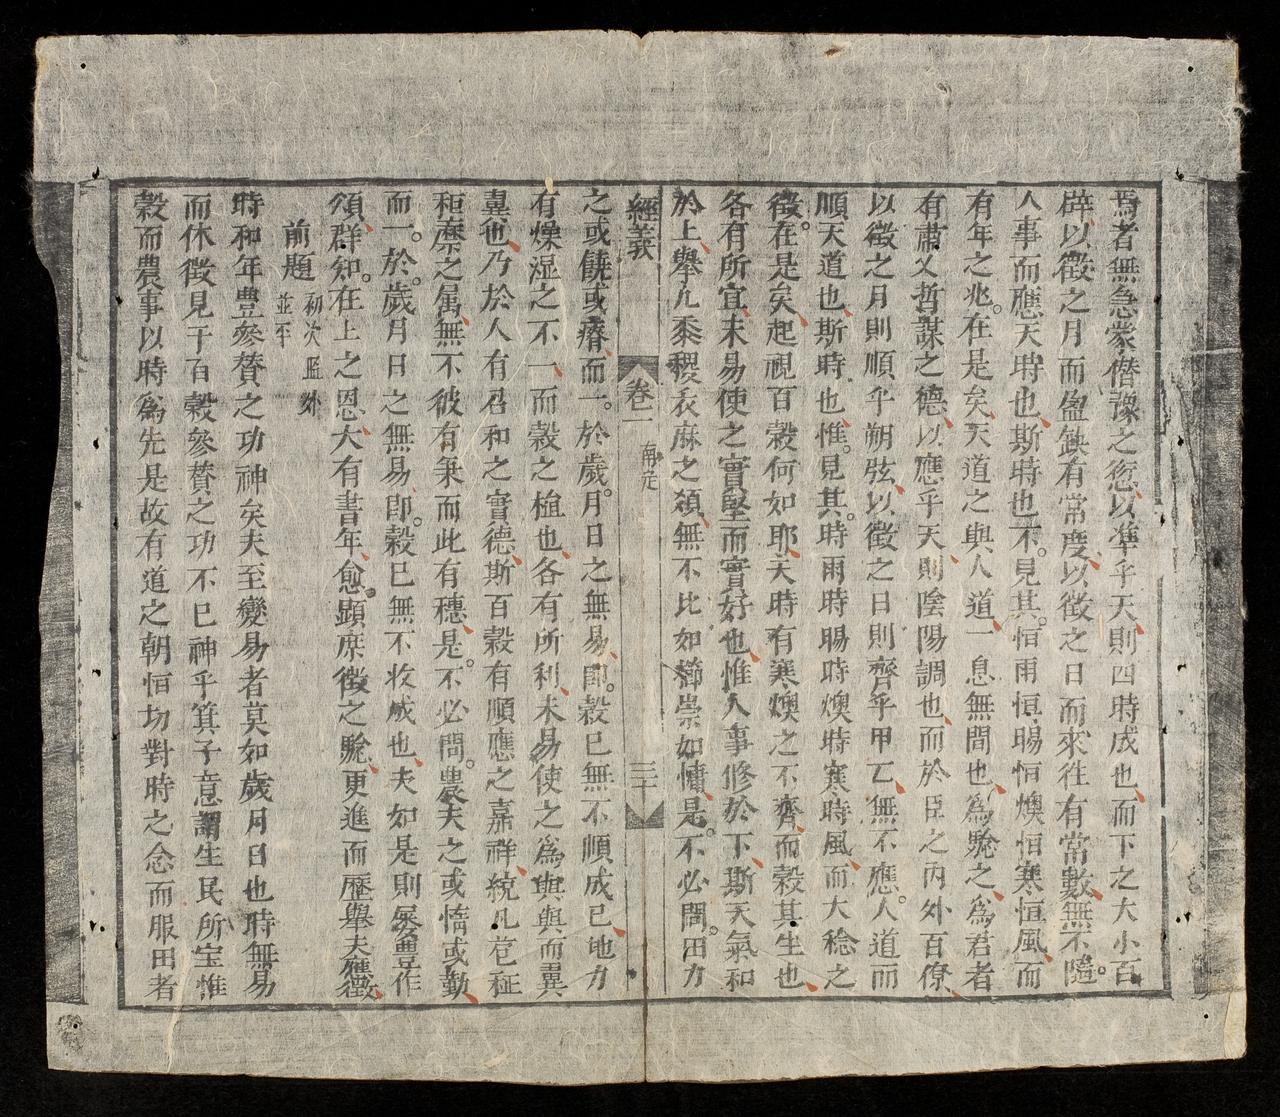 焉者無急蒙僭豫之愆以準乎天則四時成也而下之大小百
辟以徵之月而盈缺有常度以徵之日而來往有常數無不隨
人事而應天時也斯時也不見其恒雨恒暘恒燠恒寒恒風而
有年之兆在是矣天道之與人道一息無間也為驗之為君者
有肅乂哲謀之德以應乎天則陰陽調也而於臣之內外百僚
以徵之月則順乎朔弦以徵之日則齊乎甲乙無不應人道而
順天道也斯時也惟見其時雨時暘時燠時寒時風而大稔之
徵在是矣起視百穀何如耶天時有寒燠之不齊而穀其生也
各有所宜未易使之實堅而實好也惟人事修於下斯天氣和
於上舉凡黍稷衣麻之類無不比如櫛崇如墉是不必問田力
經義 卷二 南定 三十
之或饒或瘠而一於歲月日之無易即穀已無不順成已地力
有燥湿之不一而穀之植也各有所利未易使之為與與而翼
翼也乃於人有召和之實德斯百穀有順應之嘉祥統凡芑秠
秬穈之属無不彼有秉而此有穗是不必問農夫之或惰或勤
而一於歲月日之無易即穀已無不收成也夫如是則屡豐作
頌群知在上之恩大有書年愈顕庶徵之驗更進而歷舉夫應徵
前題 初次監外 並平
時和年豊參贊之功神矣夫至變易者莫如歲月日也時無易
而休徵見于百穀參賛之功不已神乎箕子意謂生民所宝惟
穀而農事以時為先是故有道之朝恒切對時之念而服田者